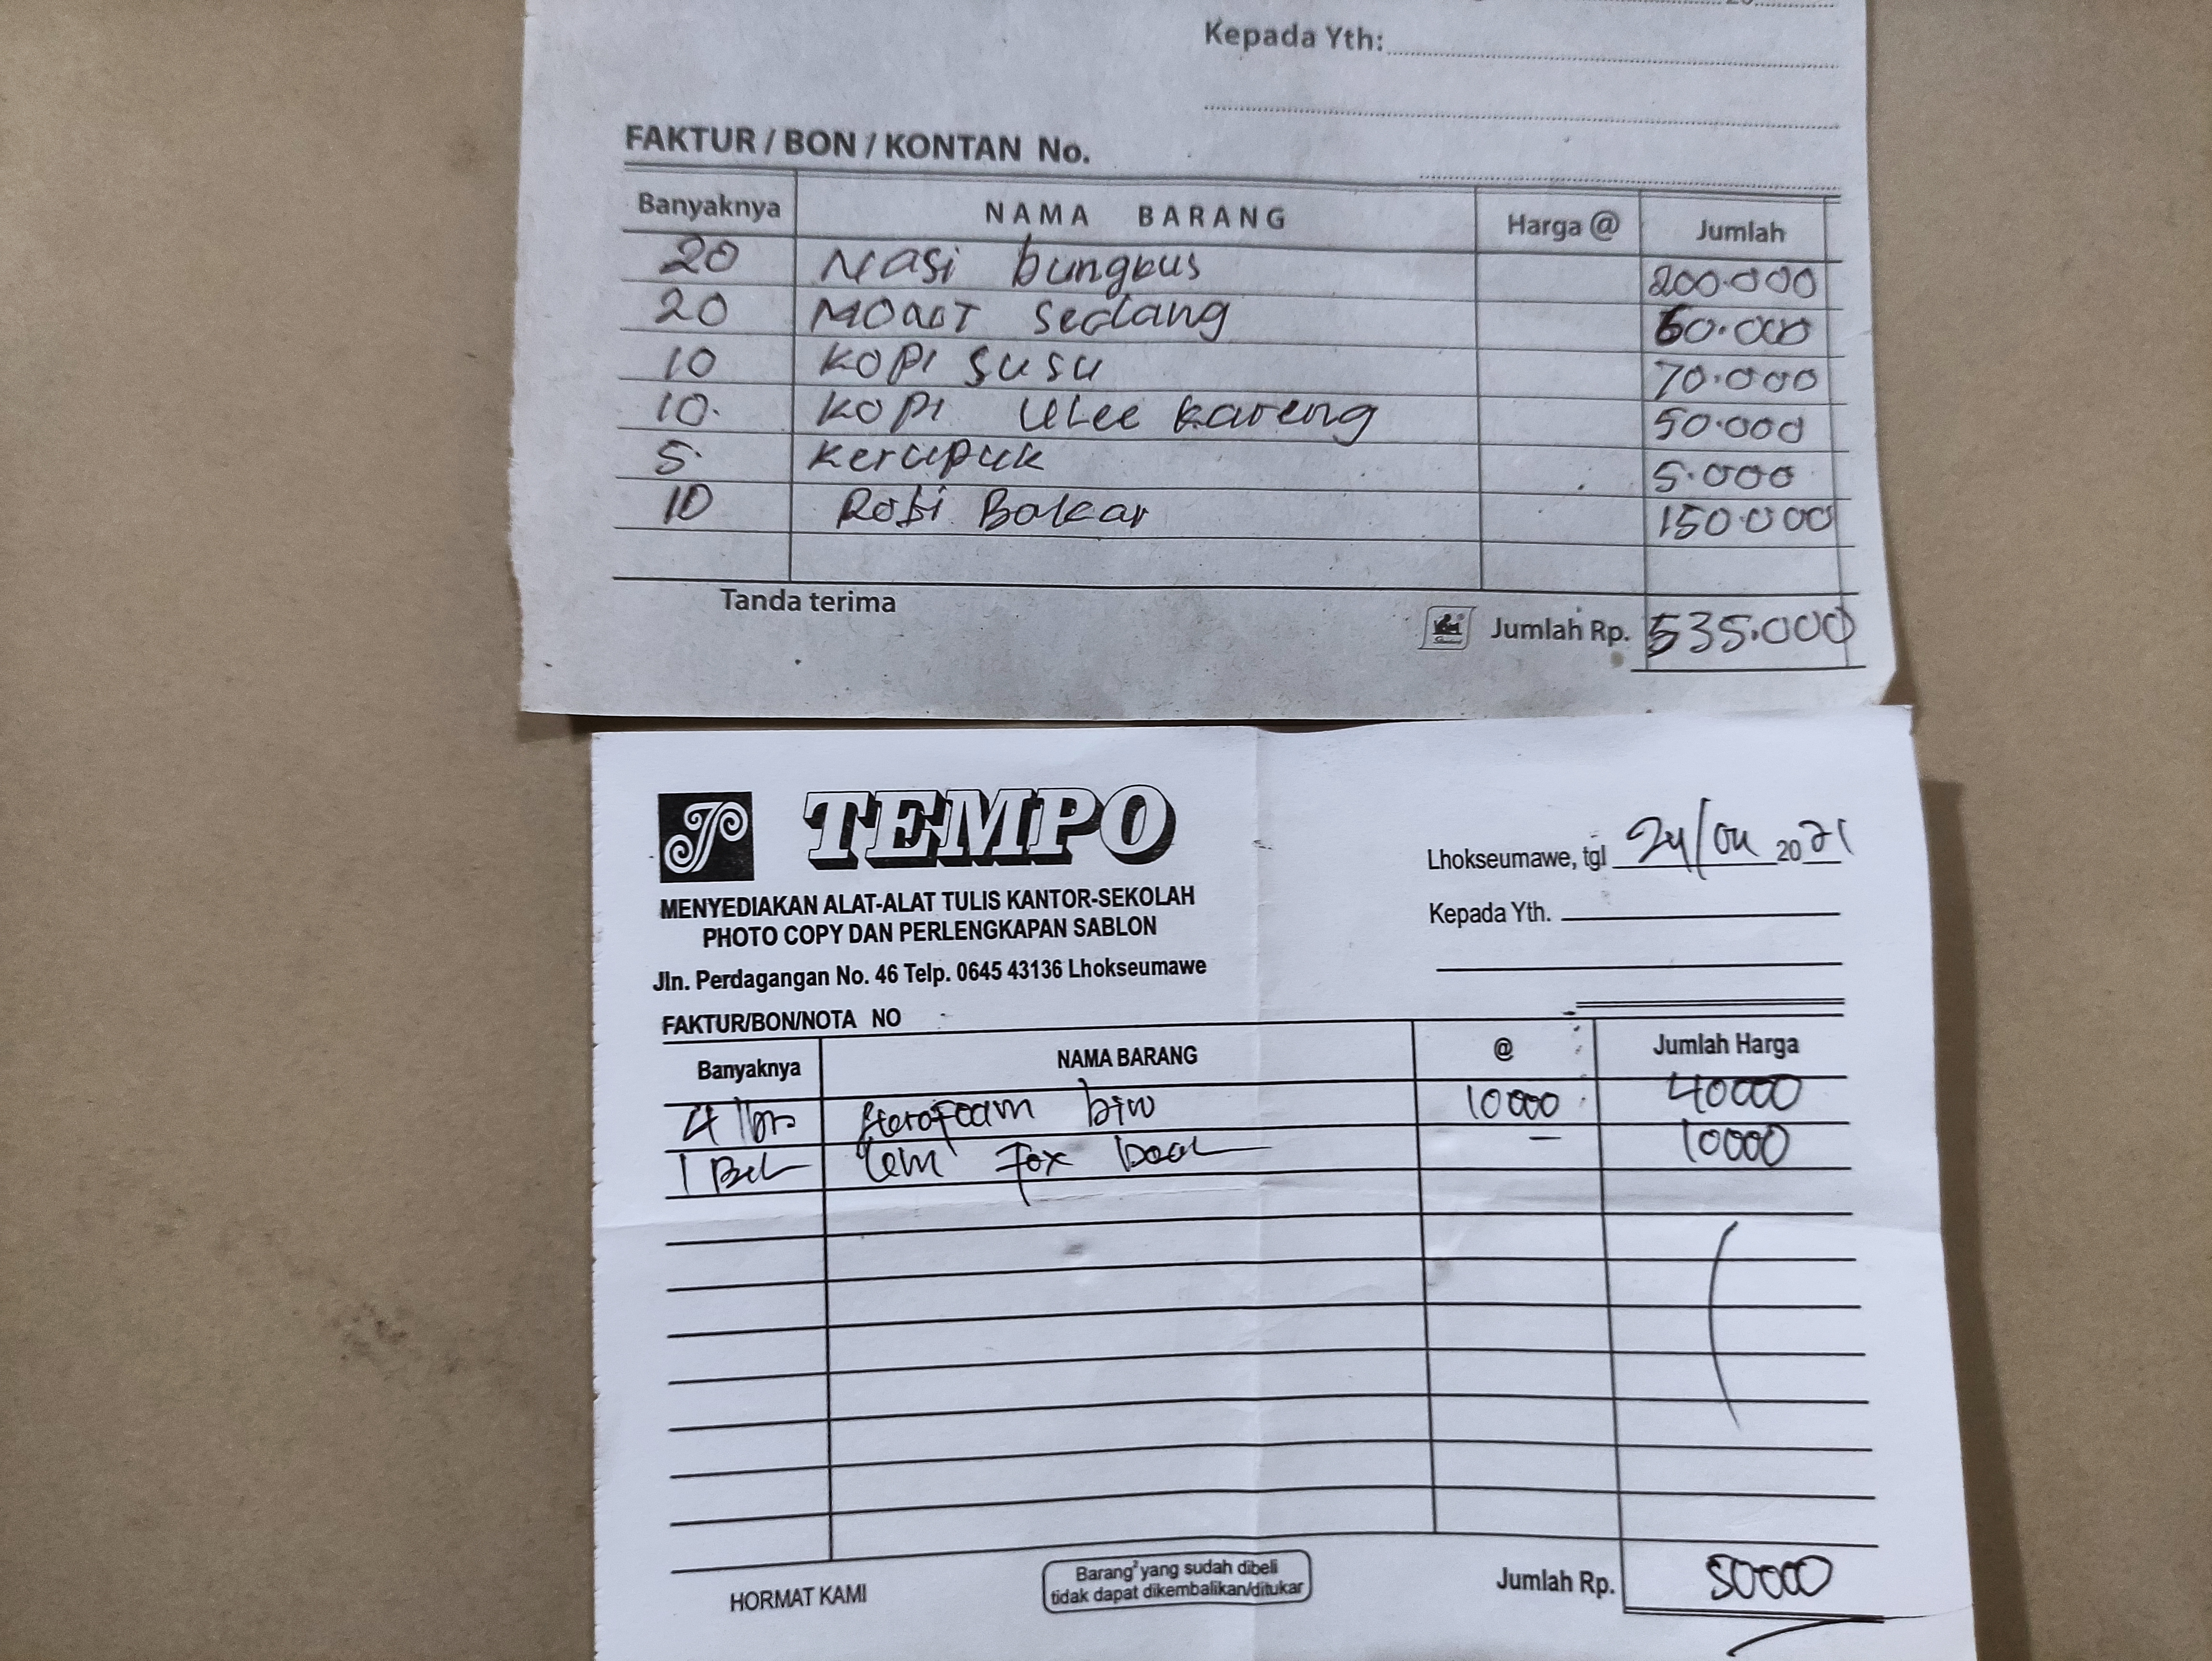 Kepada Yth:
FAKTUR / BON / KONTAN No.
Banyaknya NAMA BARANG Harga @ Jumlah
20 Nasi bungkus 200.000
20 sedang 60.000
10 KOPI SUSU 70.000
10. KOPI ULee kareng 50.000
5. Kerupuk 5.000
10 Roti Bakar 150.000
Tanda terima Jumlah Rp. 535.000
TEMPO
MENYEDIAKAN ALAT-ALAT TULIS KANTOR-SEKOLAH
PHOTO COPY DAN PERLENGKAPAN SABLON
Jln. Perdagangan No. 46 Telp. 0645 43136 Lhokseumawe
Lhokseumawe, tgl 24/04 2021
Kepada Yth.
FAKTUR/BON/NOTA NO
Banyaknya NAMA BARANG @ Jumlah Harga
4 lbr sterofoam biru 10000 40000
1 lem Fox - 10000
HORMAT KAMI
Barang² yang sudah dibeli
tidak dapat dikembalikan/ditukar
Jumlah Rp. 50000